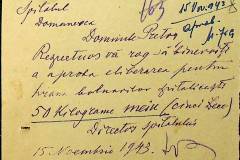 Spitalul
Domanevca
163
15 Nov. 943
Aprob.
Domnule Pretor
Respectuos vă rog să binevoiți
a aproba eliberarea pentru
hrana bolnavilor spitalicești
50 Kilograme meiu (cinci Zeci)
Director spitalului
15 Noembrie 1943.